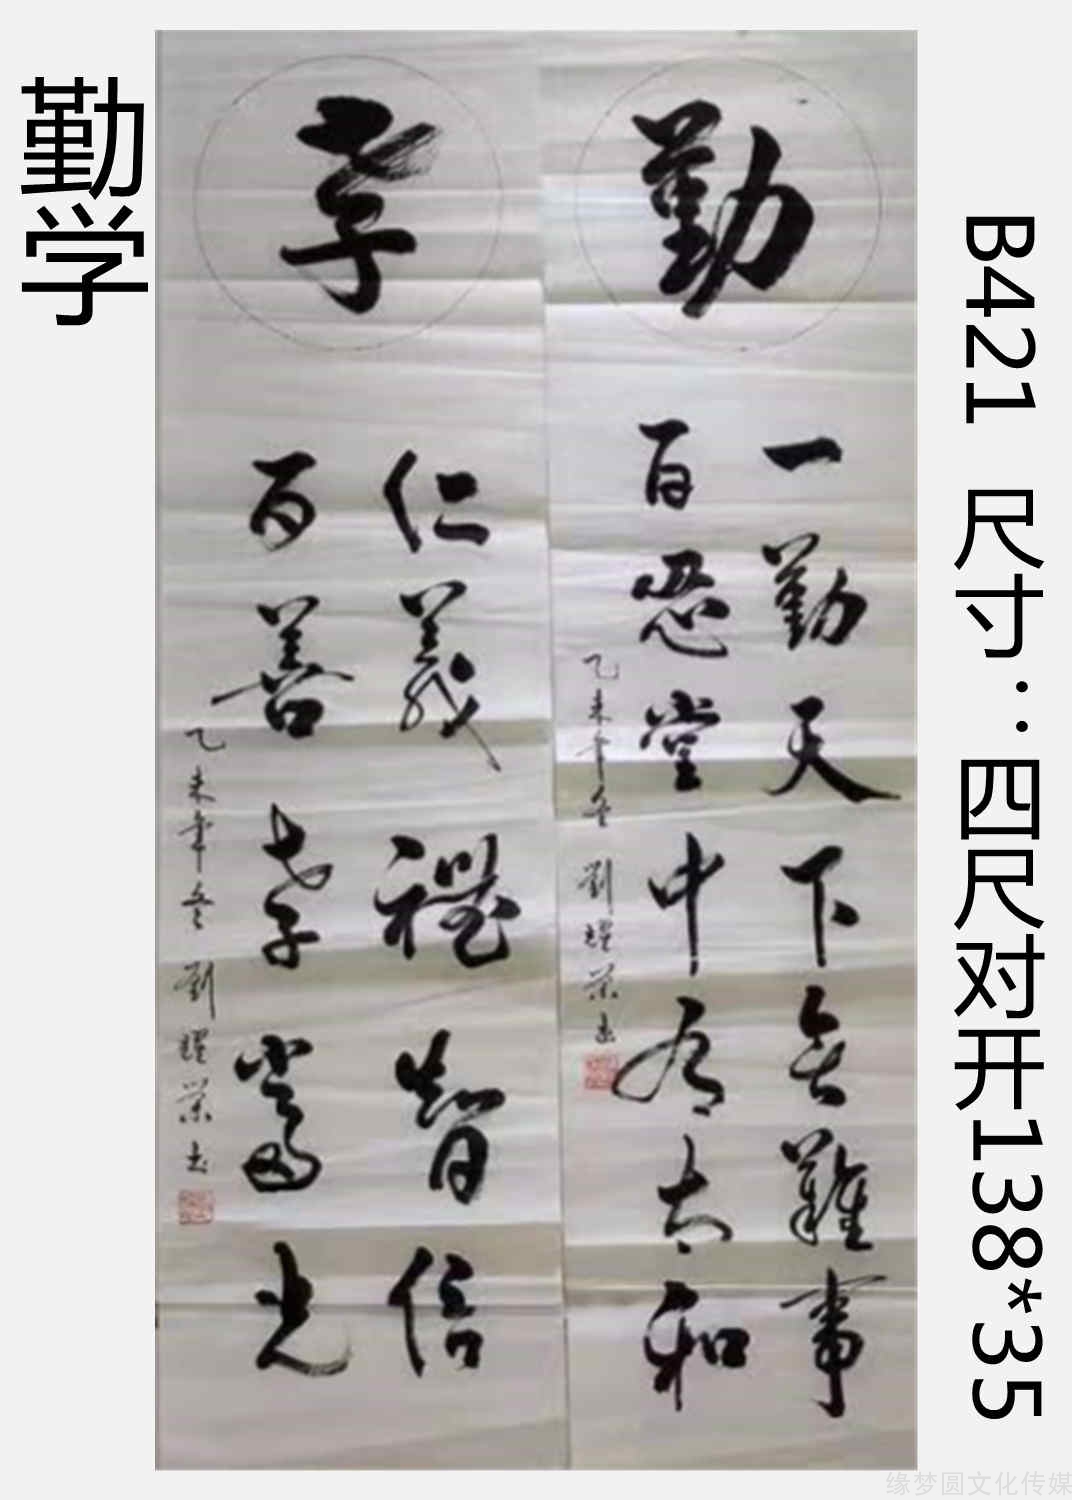 勤学
勤
一勤天下無難事
百忍堂中有太和
乙未年冬 劉耀榮書
孝
仁義禮智信
百善孝當先
乙未年冬 劉耀榮書
B421 尺寸：四尺对开138*35
缘梦圆文化传媒